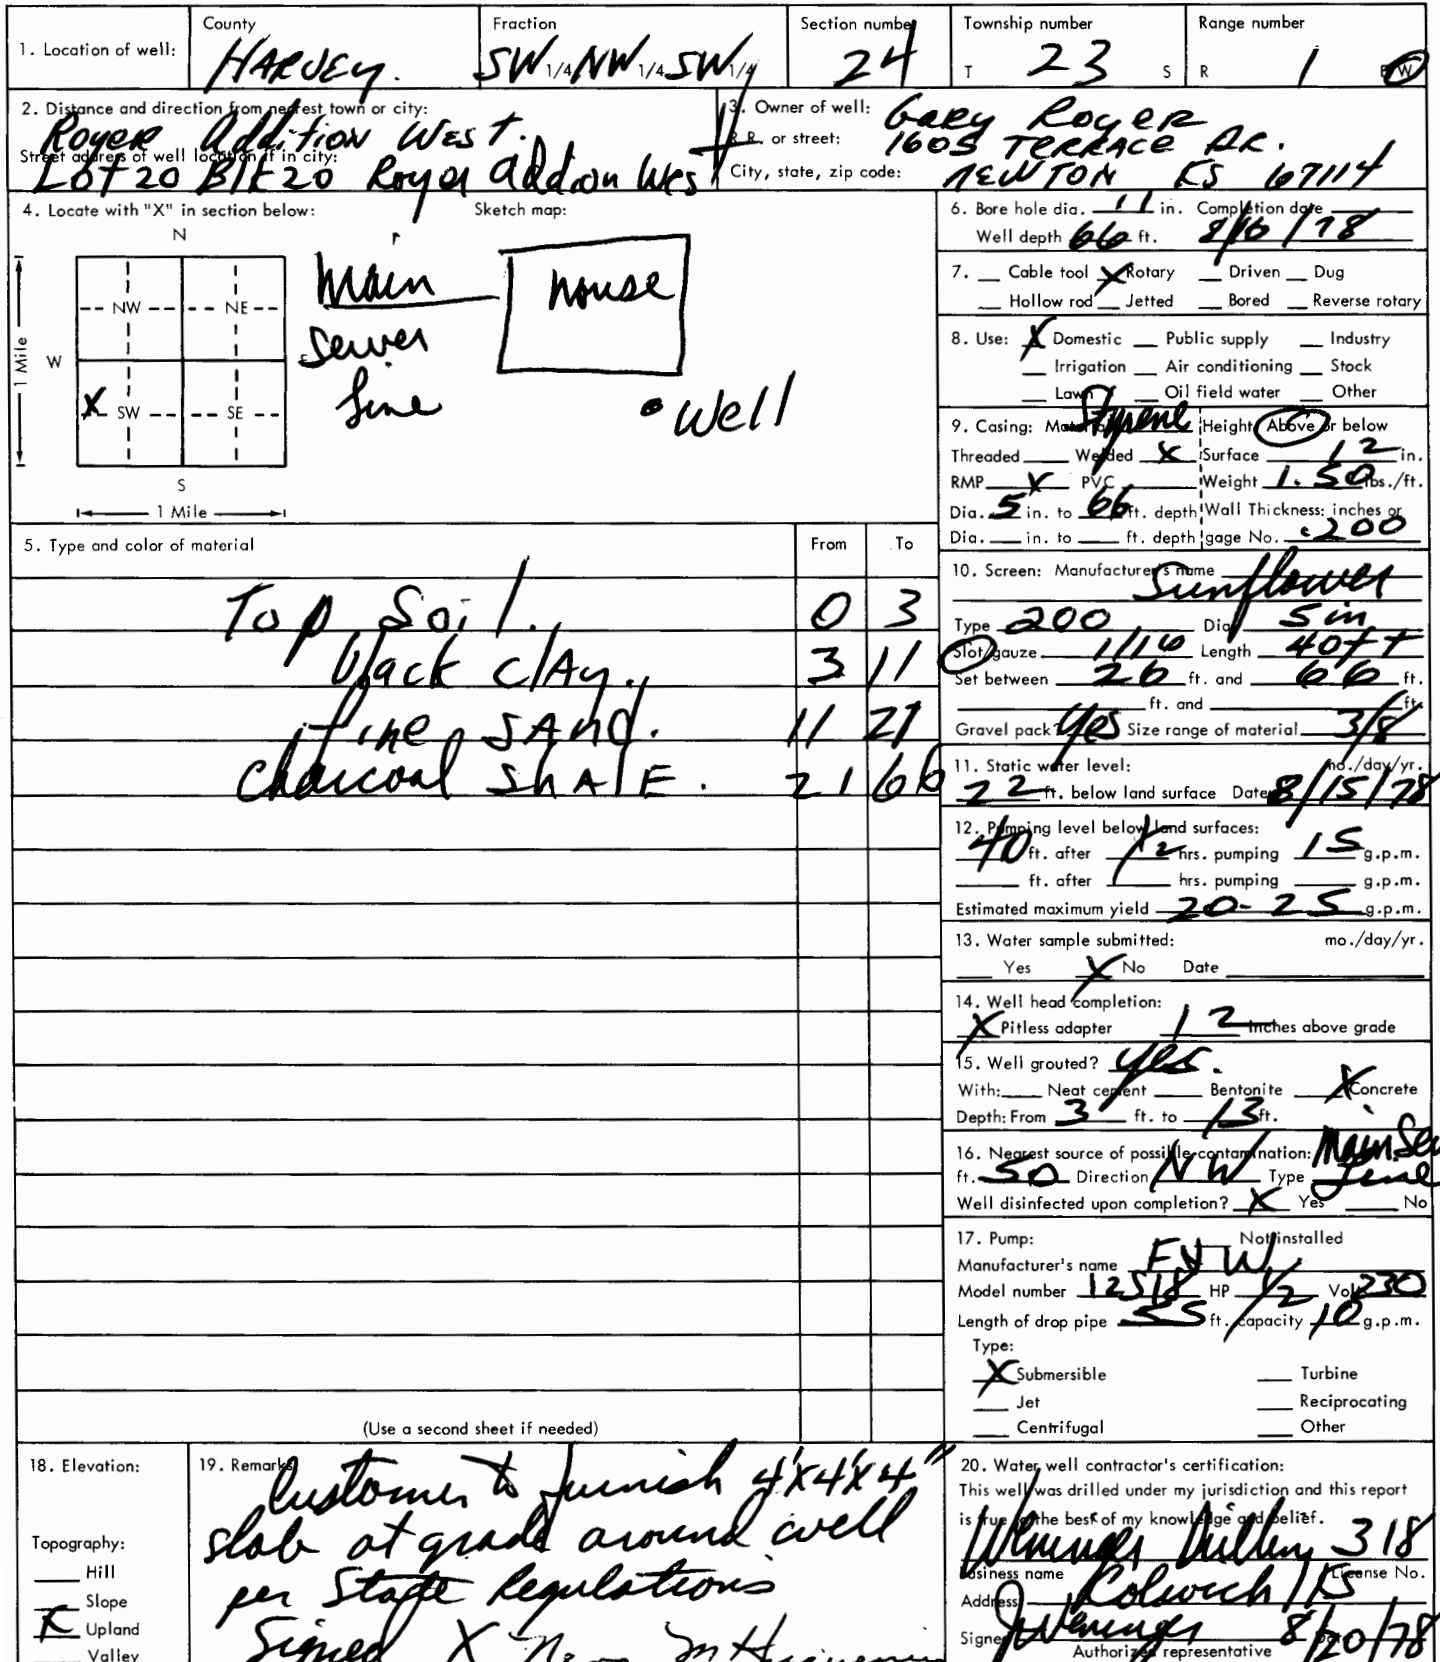 1. Location of well:
County
HARVEY.
Fraction
SW 1/4 NW 1/4 SW 1/4
Section number
24
Township number
T 23 S
Range number
R 1 E/W
2. Distance and direction from nearest town or city:
Royer Addition West.
Street address of well location if in city:
Lot 20 Blk 20 Royer addion Wes
3. Owner of well: Gary Royer
R.R. or street: 1605 TERRACE DR.
City, state, zip code: NEWTON KS 67114
4. Locate with "X" in section below:
Sketch map:
N
NW NE
W
X SW SE
S
1 Mile
1 Mile
main
sewer
line
house
Well
5. Type and color of material From To
Top Soil. 0 3
black clAy. 3 11
fine SANd. 11 21
charcoal ShAlE. 21 66
(Use a second sheet if needed)
6. Bore hole dia. 11 in. Completion date
Well depth 66 ft. 8/16/78
7. Cable tool X Rotary Driven Dug
Hollow rod Jetted Bored Reverse rotary
8. Use: X Domestic Public supply Industry
Irrigation Air conditioning Stock
Lawn Oil field water Other
9. Casing: Material Styrene Height: Above or below
Threaded Welded X Surface 12 in.
RMP X PVC Weight 1.50 lbs./ft.
Dia. 5 in. to 66 ft. depth Wall Thickness: inches or
Dia. in. to ft. depth gage No. .200
10. Screen: Manufacturer's name
Sunflower
Type 200 Dia. 5 in
Slot/gauze 1/16 Length 40 ft
Set between 26 ft. and 66 ft.
ft. and ft.
Gravel pack? Yes Size range of material 3/8
11. Static water level: mo./day/yr.
22 ft. below land surface Date 8/15/78
12. Pumping level below land surfaces:
40 ft. after 1/2 hrs. pumping 15 g.p.m.
ft. after hrs. pumping g.p.m.
Estimated maximum yield 20-25 g.p.m.
13. Water sample submitted: mo./day/yr.
Yes X No Date
14. Well head completion:
X Pitless adapter 12 inches above grade
15. Well grouted? yes.
With: Neat cement Bentonite X Concrete
Depth: From 3 ft. to 13 ft.
16. Nearest source of possible contamination: Main Sew
ft. 50 Direction NW Type Line
Well disinfected upon completion? X Yes No
17. Pump: Not installed
Manufacturer's name F&W
Model number 12518 HP 1/2 Volts 230
Length of drop pipe 55 ft. capacity 10 g.p.m.
Type:
X Submersible Turbine
Jet Reciprocating
Centrifugal Other
18. Elevation:
Topography:
Hill
Slope
X Upland
Valley
19. Remarks
Customer to furnish 4'x4'x4"
slab at grade around well
per State Regulations
Signed X
20. Water well contractor's certification:
This well was drilled under my jurisdiction and this report
is true to the best of my knowledge and belief.
Weninger Drilling 318
Business name License No.
Address Colwich KS
Signed J Weninger 8/20/78
Authorized representative